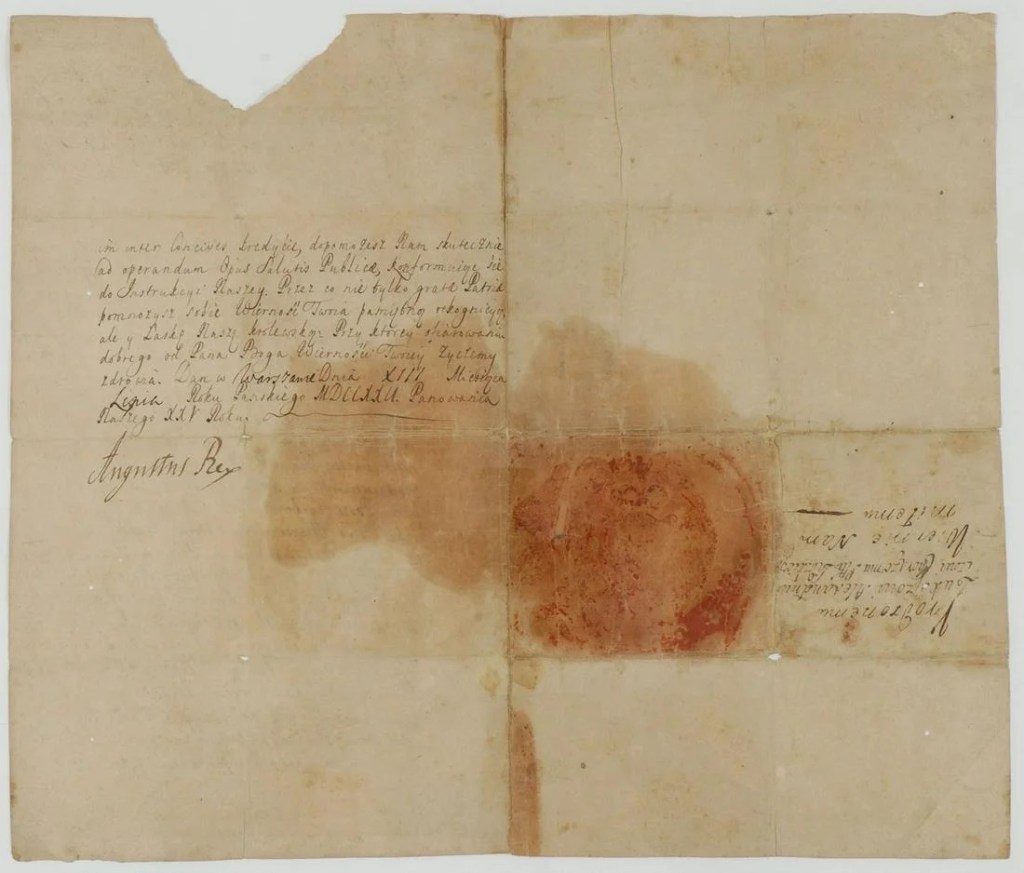 im inter Concives kredycie, dopomożesz Nam skutecznie
ad operandum Opus Salutis Publicæ, konformuiąc się
do Instrukcyi Naszey. Przez co nie tylko gratæ Patriæ
pomnożysz sobie Wierność Twoia pamiętną rekognicyą,
ale y Łaskę Naszę Krolewską: Przy ktorey ofiarowaniu
dobrego od Pana Boga Wierności Twoiey życzemy
zdrowia. Dan w Warszawie Dnia XIII Miesiąca
Lipca Roku Pańskiego MDCCXXII. Panowania
Naszego XXV Roku.
Augustus Rex
Urodzonemu
Alexandrowi
Wiernie Nam
miłemu